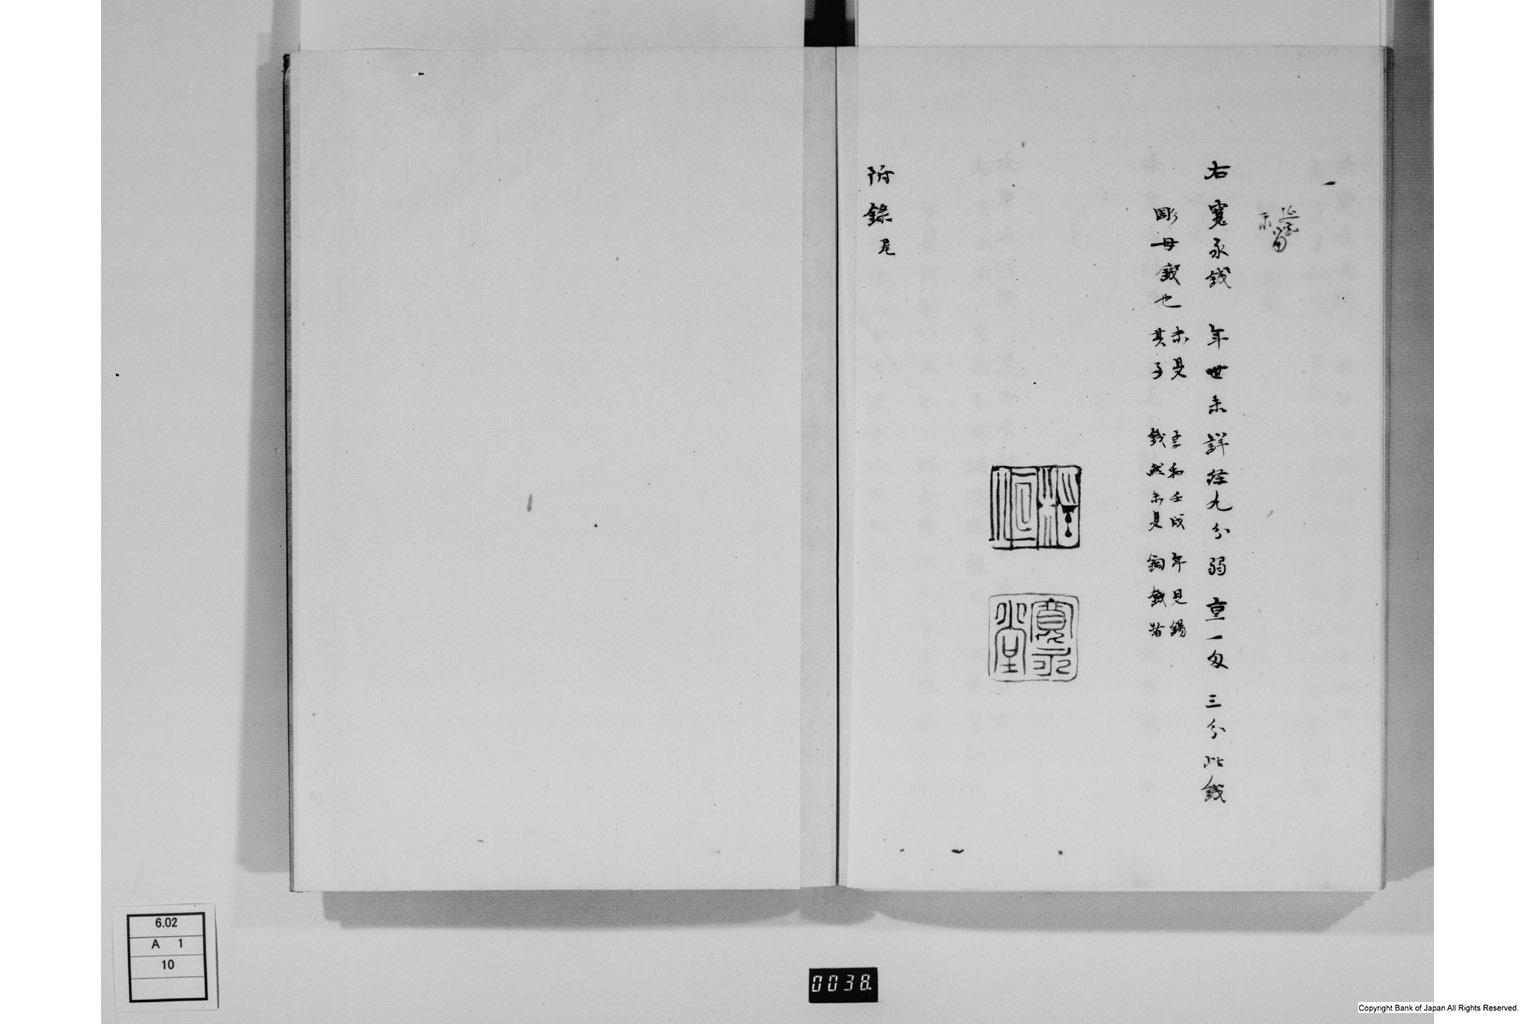 右寛永銭 年世未詳径九分弱重一匁三分此銭
彫母銭也
未見
其子
享和壬戌年見錫
銭然未見銅銭者
寛永
堂
附録尾
6.02
A 1
10
0038
Copyright Bank of Japan All Rights Reserved.